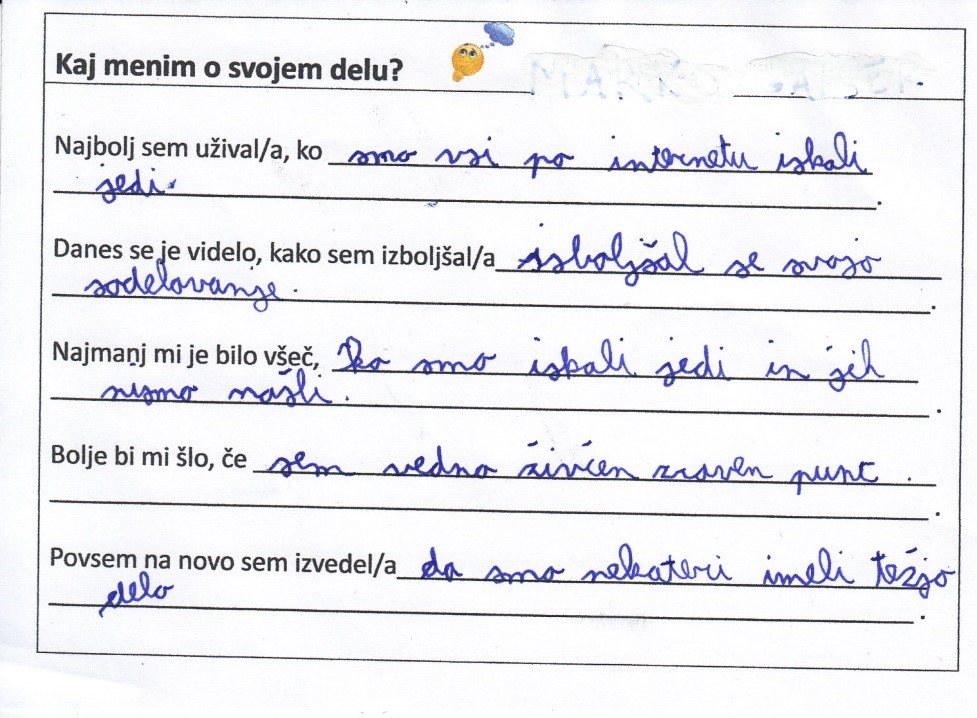 Kaj menim o svojem delu?
Najbolj sem užival/a, ko smo vsi po internetu iskali
jedi.
Danes se je videlo, kako sem izboljšal/a izboljšal se svojo
sodelovanje.
Najmanj mi je bilo všeč, ko smo iskali jedi in jih
nismo našli.
Bolje bi mi šlo, če sem vedno živčen zraven punc.
Povsem na novo sem izvedel/a da smo nekateri imeli težjo
delo